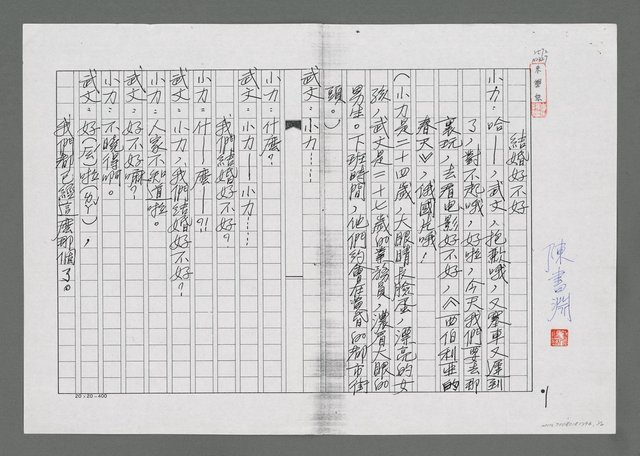 結婚好不好
小力：哈——，武文，抱歉哦，又塞車又遲到
了，對不起哦，好啦，今天我們要去那
裏玩，去看电影好不好，《西伯利亞的
春天》，俄國片哦！
（小力是二十四歲，大眼睛長臉蛋，漂亮的女
孩，武文是二十七歲的業務員，濃眉大眼的
男生。下班時間，他們約會在黃昏的都市街
頭。）
武文：小力……
小力：什麼？
武文：小力——小力……
我們結婚好不好？
小力：什——麼——？！
武文：小力，我們結婚好不好？
小力：人家不知道啦。
武文：好不好嘛？
小力：不曉得啊。
武文：好（ㄏㄠˇ）啦（ㄌㄚ），
我們都已經這麼那個了。
陳書淵
20×20=400